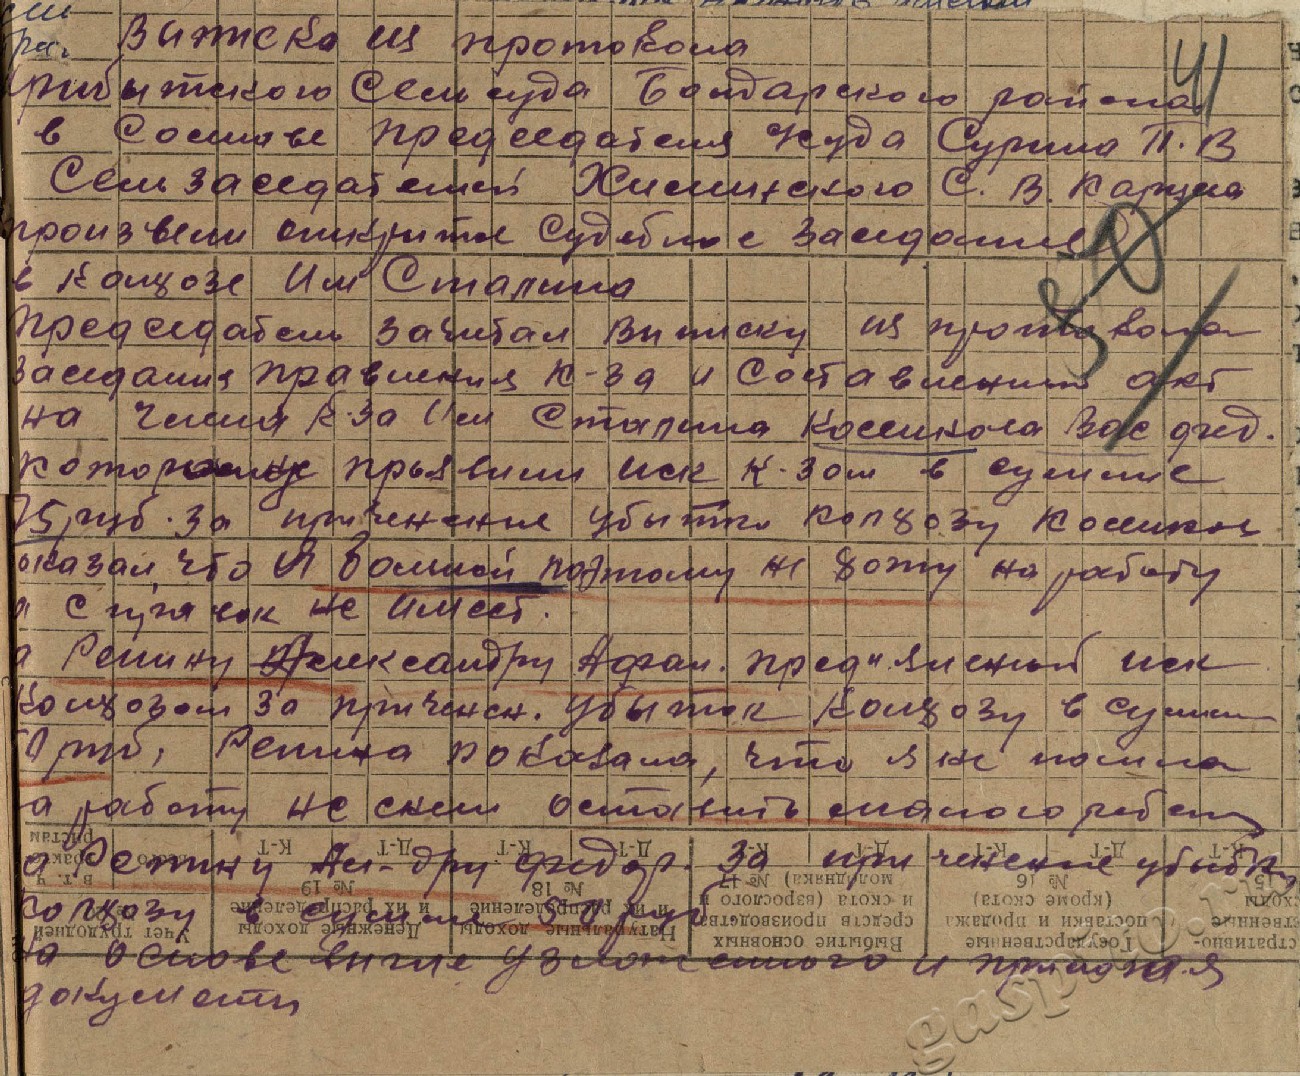 Выписка из протокола
41
Прибытского Сельсуда Бондарского района
в Составе председателя Суда Сурина П.В
Сель заседателей Хисинского С. В. Карцева
произвели открытое Судебное заседания
в колхозе Им Сталина
председатель зачитал Выписку из протокола
заседания правления к-за и Составленный акт
на члена К-за Им Сталина Косенкова Вас фед.
которому прыявили иск к-зом в сумме
75 руб. за причинение убытка колхозу Косенков
оказал, что Я больной поэтому не хожу на работу
а справок не имеет.
а Репину Александру Афан. предъявленый иск
колхозом за причинен. убыток колхозу в сумме
50 руб, Репина показала, что я не пошла
а работу не с кем оставить малого ребен
а Репину Ал-дру федор. за причинение убытка
колхозу в сумме 50 руб.
на основе выше узложенного и прилагая
документы
Учет трудодней
Денежные доходы и их распределение № 19
Натуральные доходы и их распределение № 18
Выбытие основных средств производства и скота (взрослого и молодняка) № 17
Государственные поставки и продажа (кроме скота) № 16
К-т Д-т К-т Д-т К-т Д-т К-т Д-т К-т
gaspito.ru